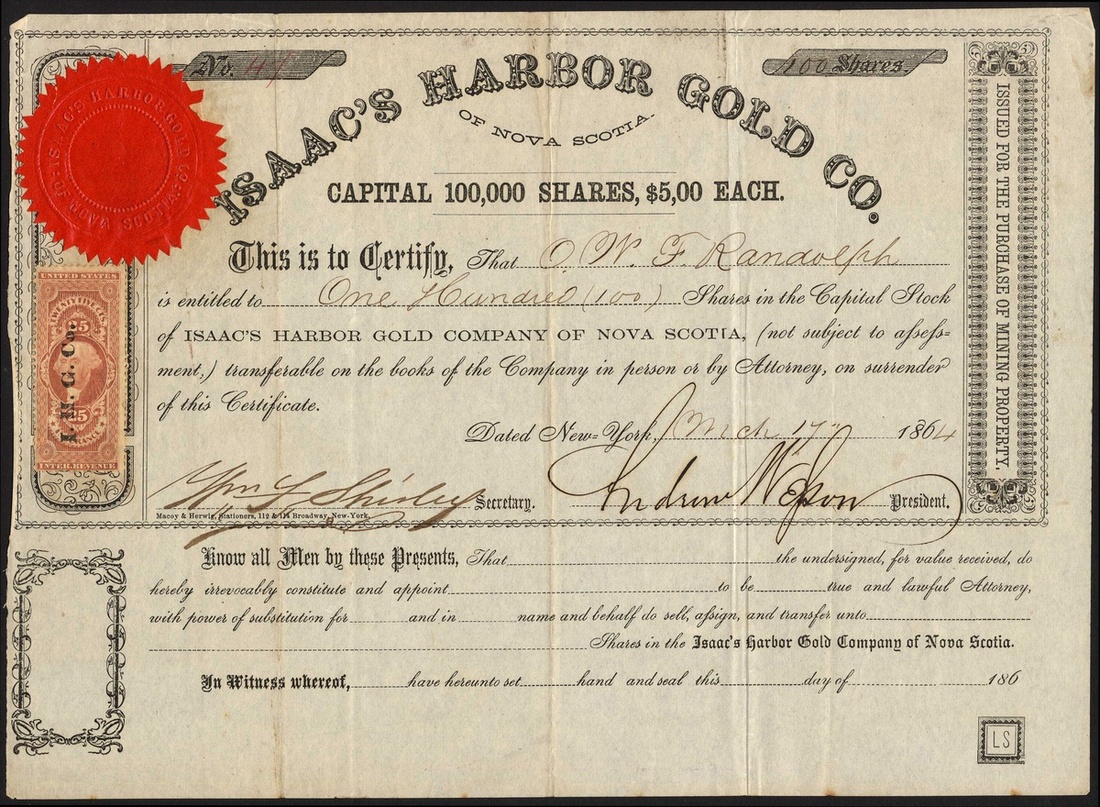 No. 47
100 Shares.
ISAAC'S HARBOR GOLD CO.
OF NOVA SCOTIA.
CAPITAL 100,000 SHARES, $5,00 EACH.
This is to Certify, That O. W. F. Randolph
is entitled to One Hundred (100) Shares in the Capital Stock
of ISAAC'S HARBOR GOLD COMPANY OF NOVA SCOTIA, (not subject to aſseſs-
ment,) transferable on the books of the Company in person or by Attorney, on surrender
of this Certificate.
Dated New-York, Mch 17th 1864
Wm L Shirley Secretary.
Andrew President.
Macoy & Herwig, Stationers, 112 & 114 Broadway, New-York.
ISAAC'S HARBOR GOLD CO. OF NOVA SCOTIA
UNITED STATES
25
25
INTER. REVENUE
I. H. G. Co.
ISSUED FOR THE PURCHASE OF MINING PROPERTY.
Know all Men by these Presents, That the undersigned, for value received, do
hereby irrevocably constitute and appoint to be true and lawful Attorney,
with power of substitution for and in name and behalf do sell, aſsign, and transfer unto
Shares in the Isaac's Harbor Gold Company of Nova Scotia.
In Witness whereof, have hereunto set hand and seal this day of 186
LS